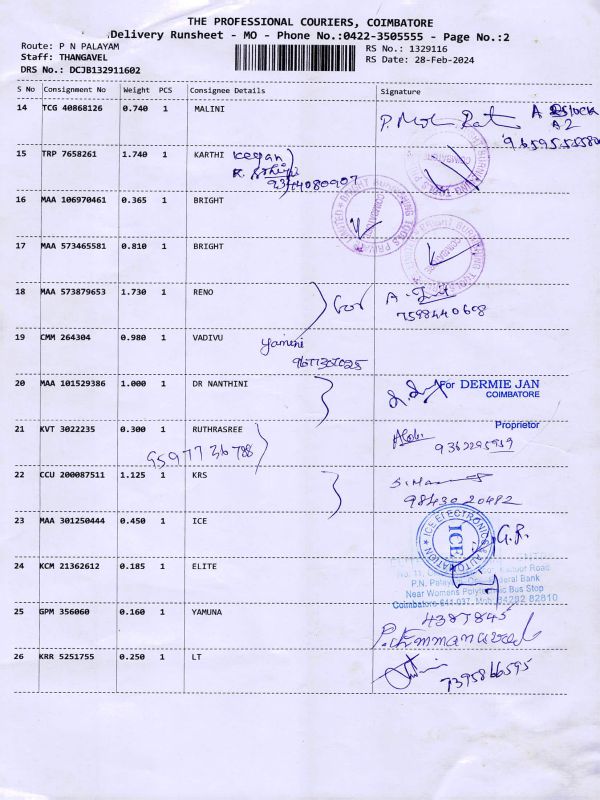 THE PROFESSIONAL COURIERS, COIMBATORE
Delivery Runsheet - MO - Phone No.:0422-3505555 - Page No.:2
Route: P N PALAYAM
RS No.: 1329116
Staff: THANGAVEL
RS Date: 28-Feb-2024
DRS No.: DCJB132911602
S No Consignment No Weight PCS Consignee Details Signature
14 TCG 40868126 0.740 1 MALINI
A Block
A2
9659555580
15 TRP 7658261 1.740 1 KARTHI
9344080907
16 MAA 106970461 0.365 1 BRIGHT
17 MAA 573465581 0.810 1 BRIGHT
18 MAA 573879653 1.730 1 RENO
for
7598440698
19 CMM 264304 0.980 1 VADIVU
Yamini
20 MAA 101529386 1.000 1 DR NANTHINI
For DERMIE JAN
COIMBATORE
Proprietor
21 KVT 3022235 0.300 1 RUTHRASREE
9597736788
9362295939
22 CCU 200087511 1.125 1 KRS
9843020482
23 MAA 301250444 0.450 1 ICE
ICE ELECTRONICS & AUTOMATION
ICE
G.R.
24 KCM 21362612 0.185 1 ELITE
Near Womens Polytechnic Bus Stop
Coimbatore-641 037.
25 GPM 356060 0.160 1 YAMUNA
4387845
26 KRR 5251755 0.250 1 LT
7395866595